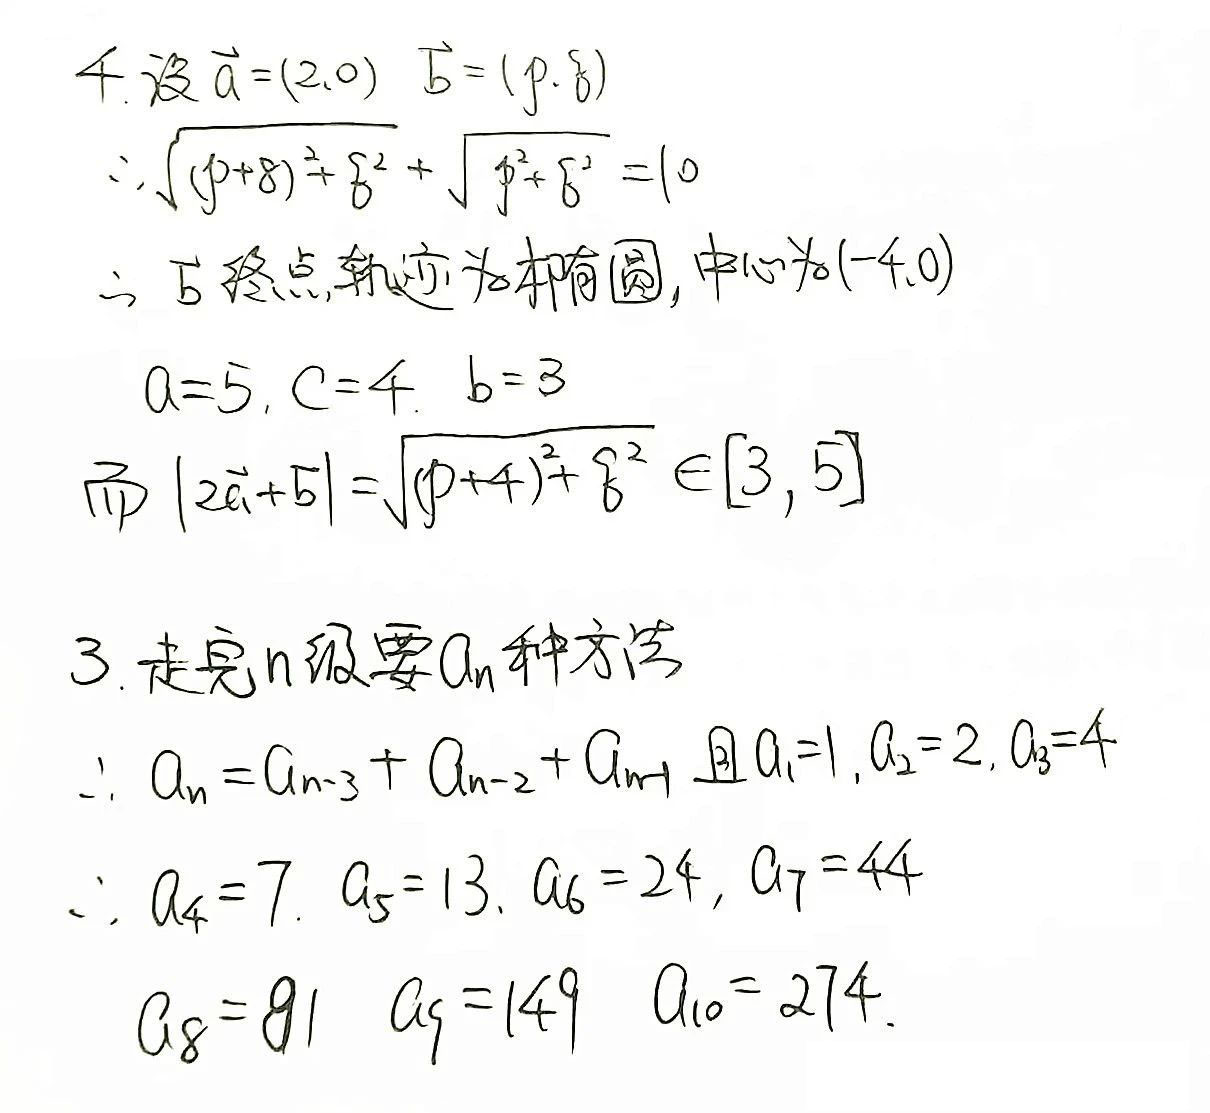 4. 设 \vec{a}=(2,0) \vec{b}=(p,q)
∴ √((p+8)²+q²) + √(p²+q²) =10
∴ \vec{b}终点轨迹为椭圆,中心为(-4,0)
a=5, c=4. b=3
而 |2\vec{a}+\vec{b}| = √((p+4)²+q²) ∈[3,5]
3. 走完n级要aₙ种方法
∴ aₙ=aₙ₋₃+aₙ₋₂+aₙ₋₁ 且a₁=1, a₂=2, a₃=4
∴ a₄=7. a₅=13, a₆=24, a₇=44
a₈=81 a₉=149 a₁₀=274.